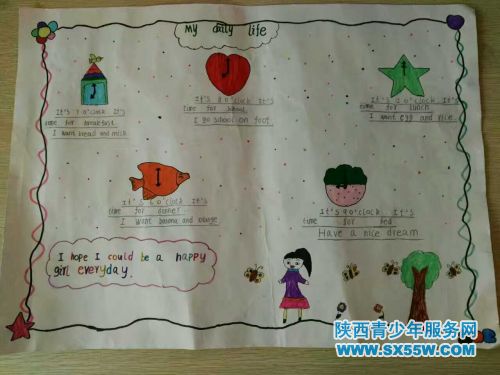 My daily life
It's 7 o'clock It's
time for breakfast.
I want bread and milk
It's 8 o'clock It's
time for school
I go school on foot
It's o'clock It's
time for lunch
I want egg and rice
It's 6 o'clock It's
time for dinner
I want banana and orange
It's 9 o'clock It's
time for bed
Have a nice dream
I hope I could be a happy
girl everyday.
陕西青少年服务网
www.sx55w.com